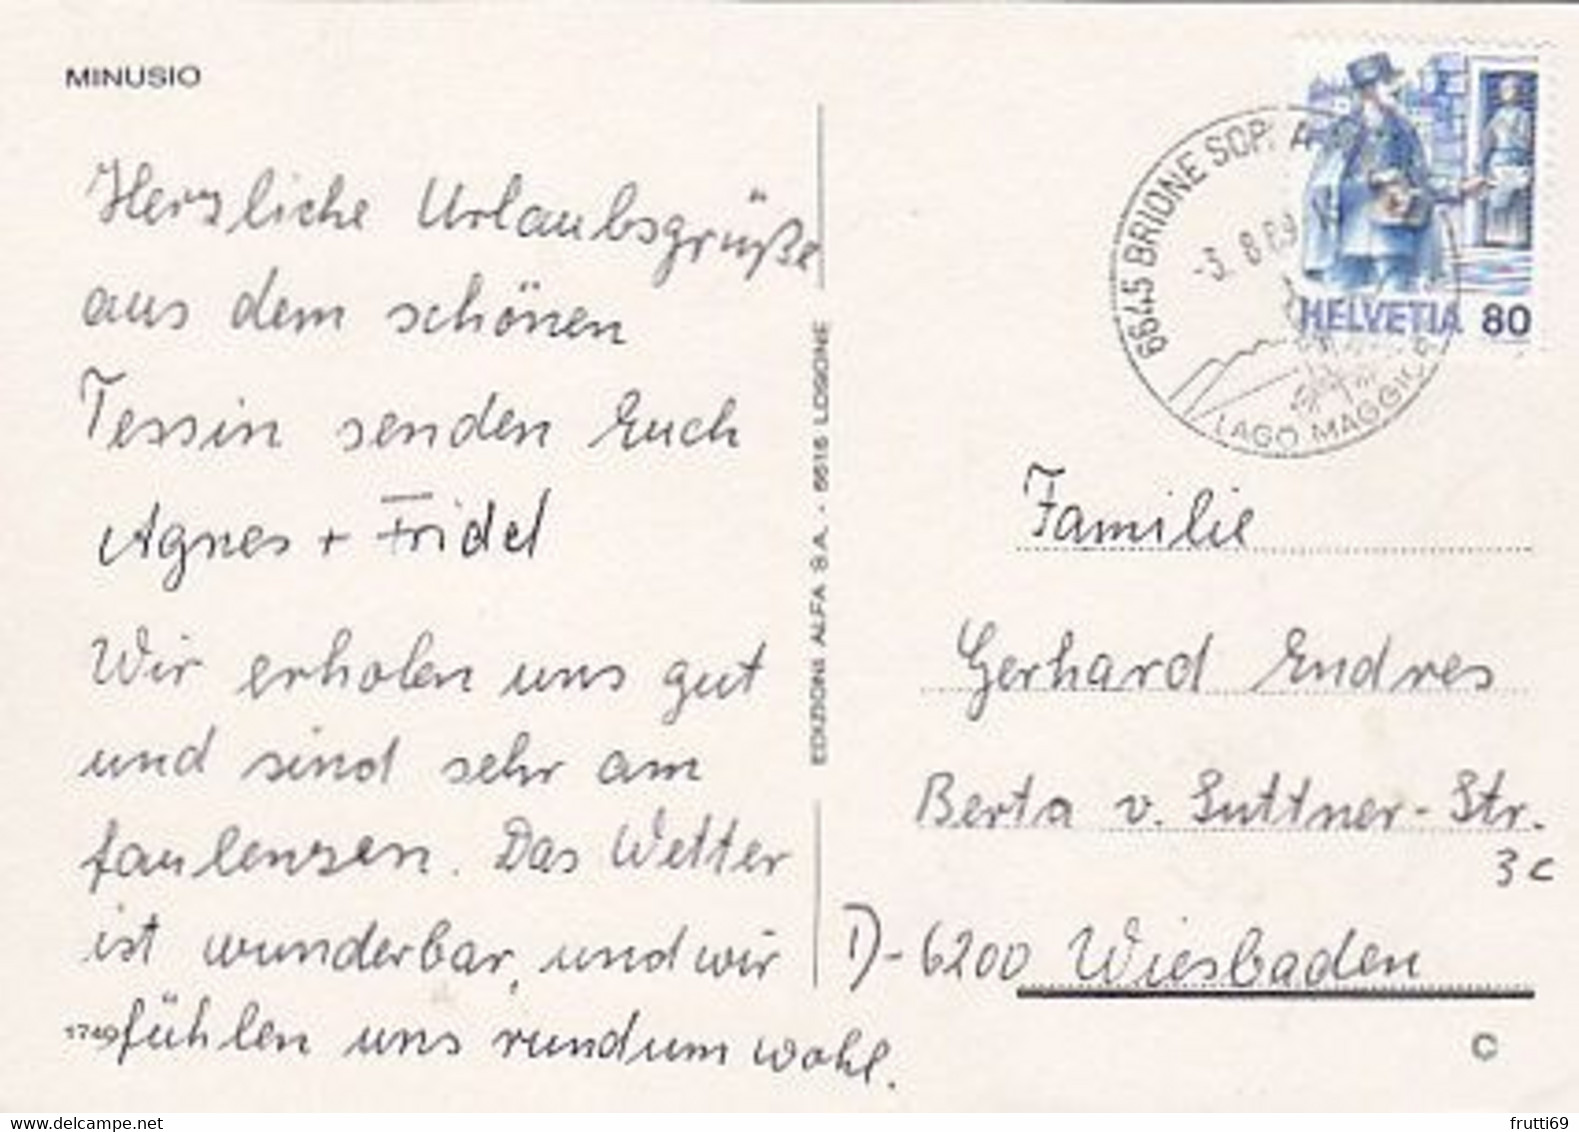 MINUSIO
Herzliche Urlaubsgrüße
aus dem schönen
Tessin senden Euch
Agnes + Fridel
Wir erholen uns gut
und sind sehr am
faulenzen. Das Wetter
ist wunderbar, und wir
fühlen uns rundum wohl.
1749
EDIZIONI ALFA S.A. - 6616 LOSONE
6645 BRIONE SOP. A
-3.8.89
LAGO MAGGIORE
HELVETIA 80
Familie
Gerhard Endres
Berta v. Suttner-Str.
3c
D-6200 Wiesbaden
©
www.delcampe.net
frutti69